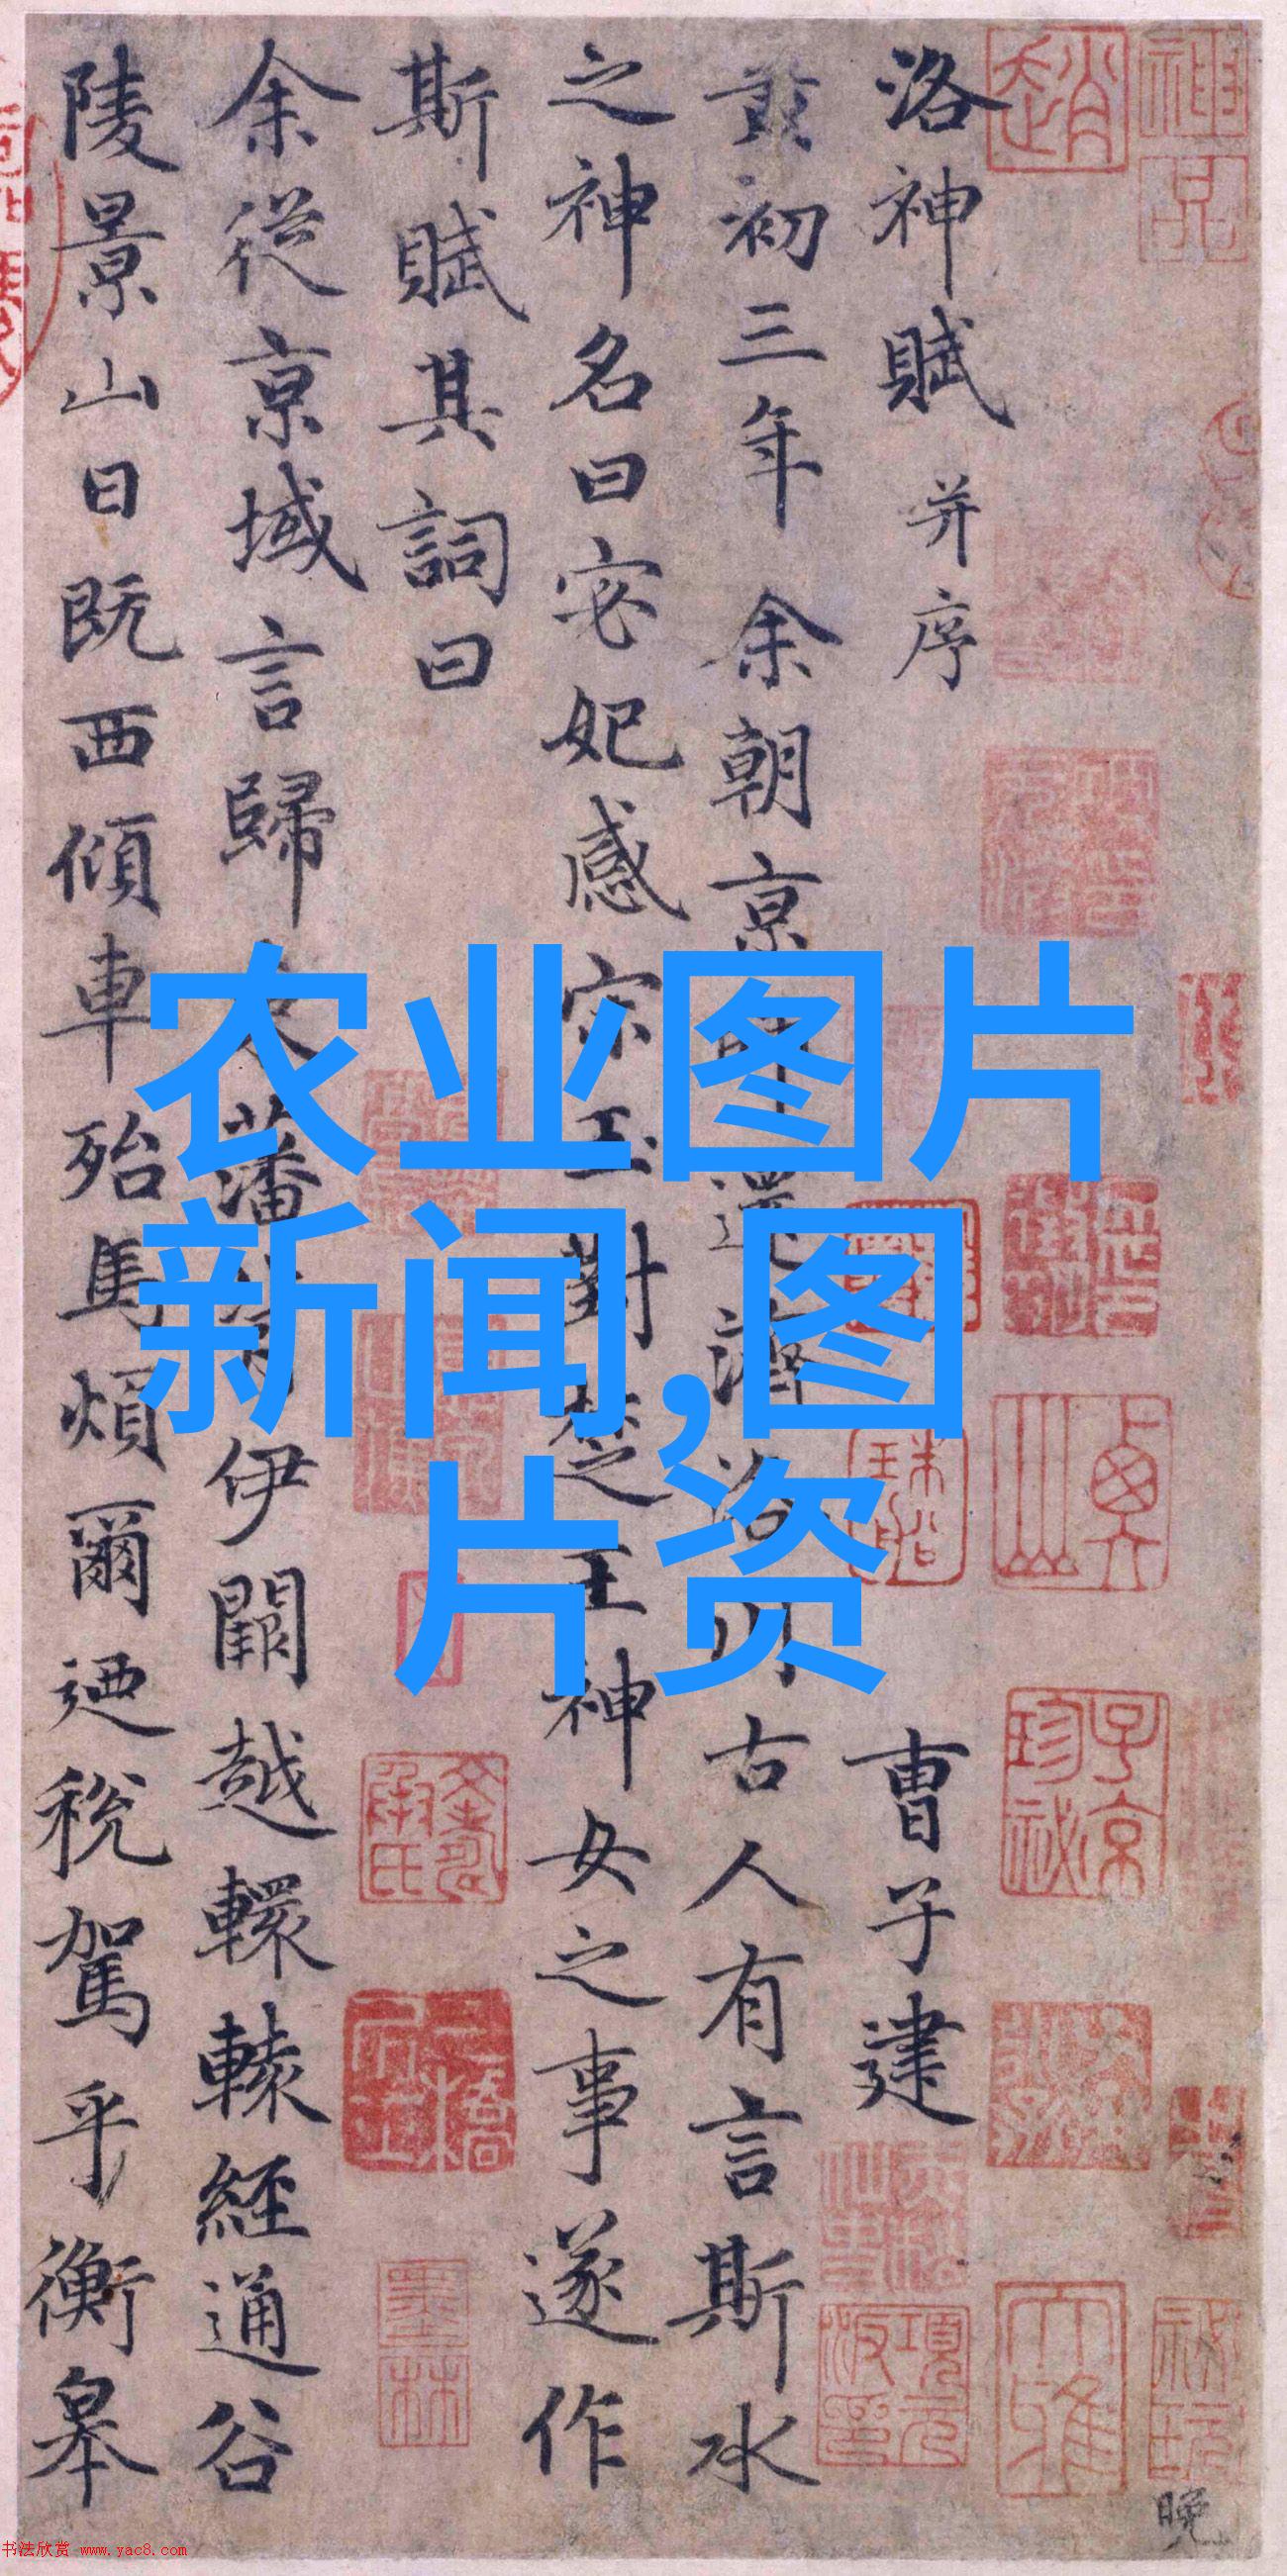 洛神賦 并序 曹子建
黃初三年余朝京還濟洛川古人有言斯水
之神名曰宓妃感宋玉對楚王神女之事遂作
斯賦其詞曰
余從京域言歸藩伊闕越轘轅經通谷
陵景山日既西傾車殆馬煩爾迺稅駕乎衡皋
农业图片
新闻,图
片资
趙
神品
子京珍祕
大雅
項元汴印
墨林
晚
书法欣赏 www.yac8.com